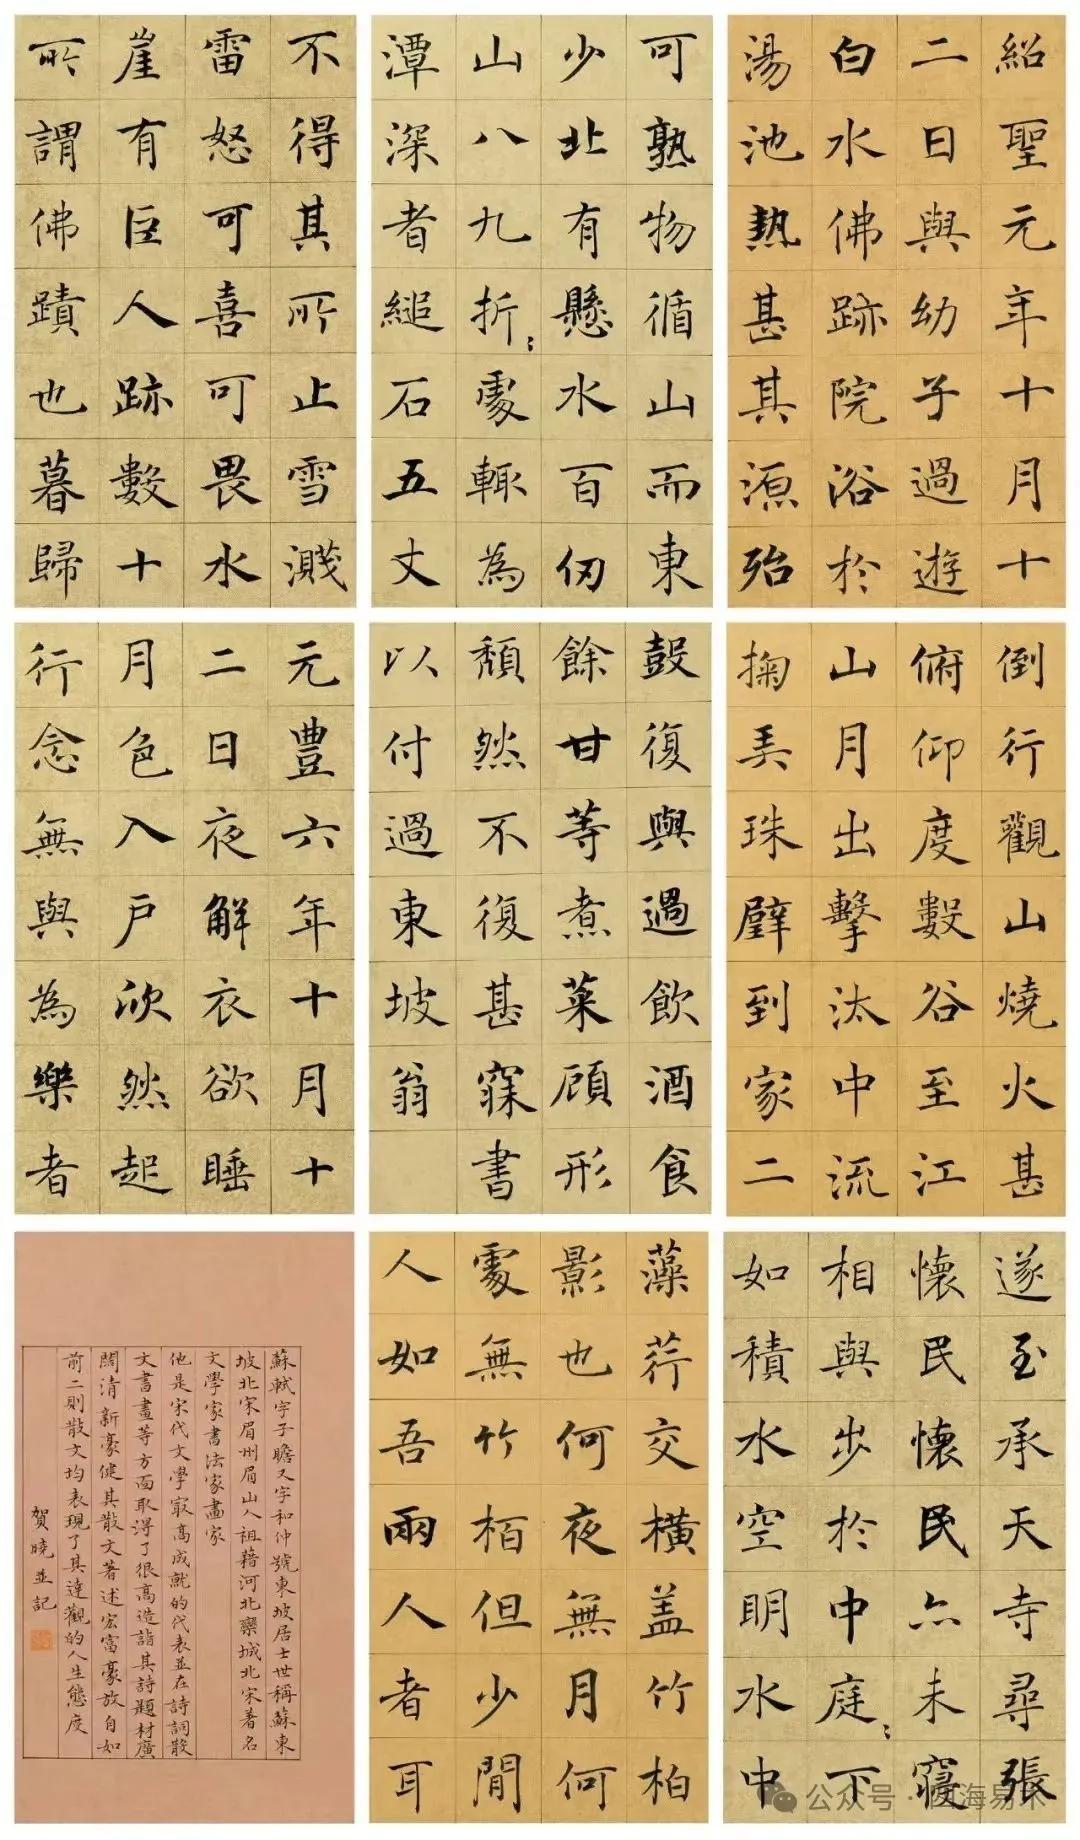 紹聖元年十月十
二日與幼子過遊
白水佛跡院浴於
湯池熱甚其源殆
可熟物循山而東
少北有懸水百仞
山八九折處輒為
潭深者縋石五丈
不得其所止雪濺
雷怒可喜可畏水
崖有巨人跡數十
所謂佛蹟也暮歸
倒行觀山燒火甚
俯仰度數谷至江
山月出擊汰中流
掬弄珠璧到家二
鼓復與過飲酒食
餘甘等煮菜顧形
頹然不復甚寐書
以付過東坡翁
元豐六年十月十
二日夜解衣欲睡
月色入戶欣然起
行念無與為樂者
遂至承天寺尋張
懷民懷民亦未寢
相與步於中庭下
如積水空明水中
藻荇交橫盖竹柏
影也何夜無月何
處無竹栢但少閒
人如吾兩人者耳
蘇軾字子瞻又字和仲號東坡居士世稱蘇東
坡北宋眉州眉山人祖籍河北欒城北宋著名
文學家書法家畫家
他是宋代文學最高成就的代表並在詩詞散
文書畫等方面取得了很高造詣其詩題材廣
闊清新豪健其散文著述宏富豪放自如
前二則散文均表現了其達觀的人生態度
賀曉並記
公众号